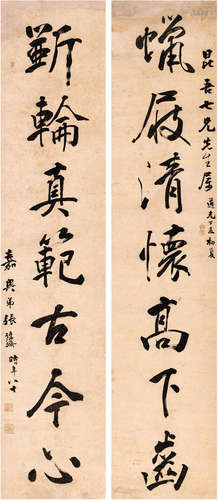 昆吾七兄先生屬 道光丁未初夏
蠟屐清懷高下齒
斲輪真範古今心
嘉興弟張廷濟時年八十